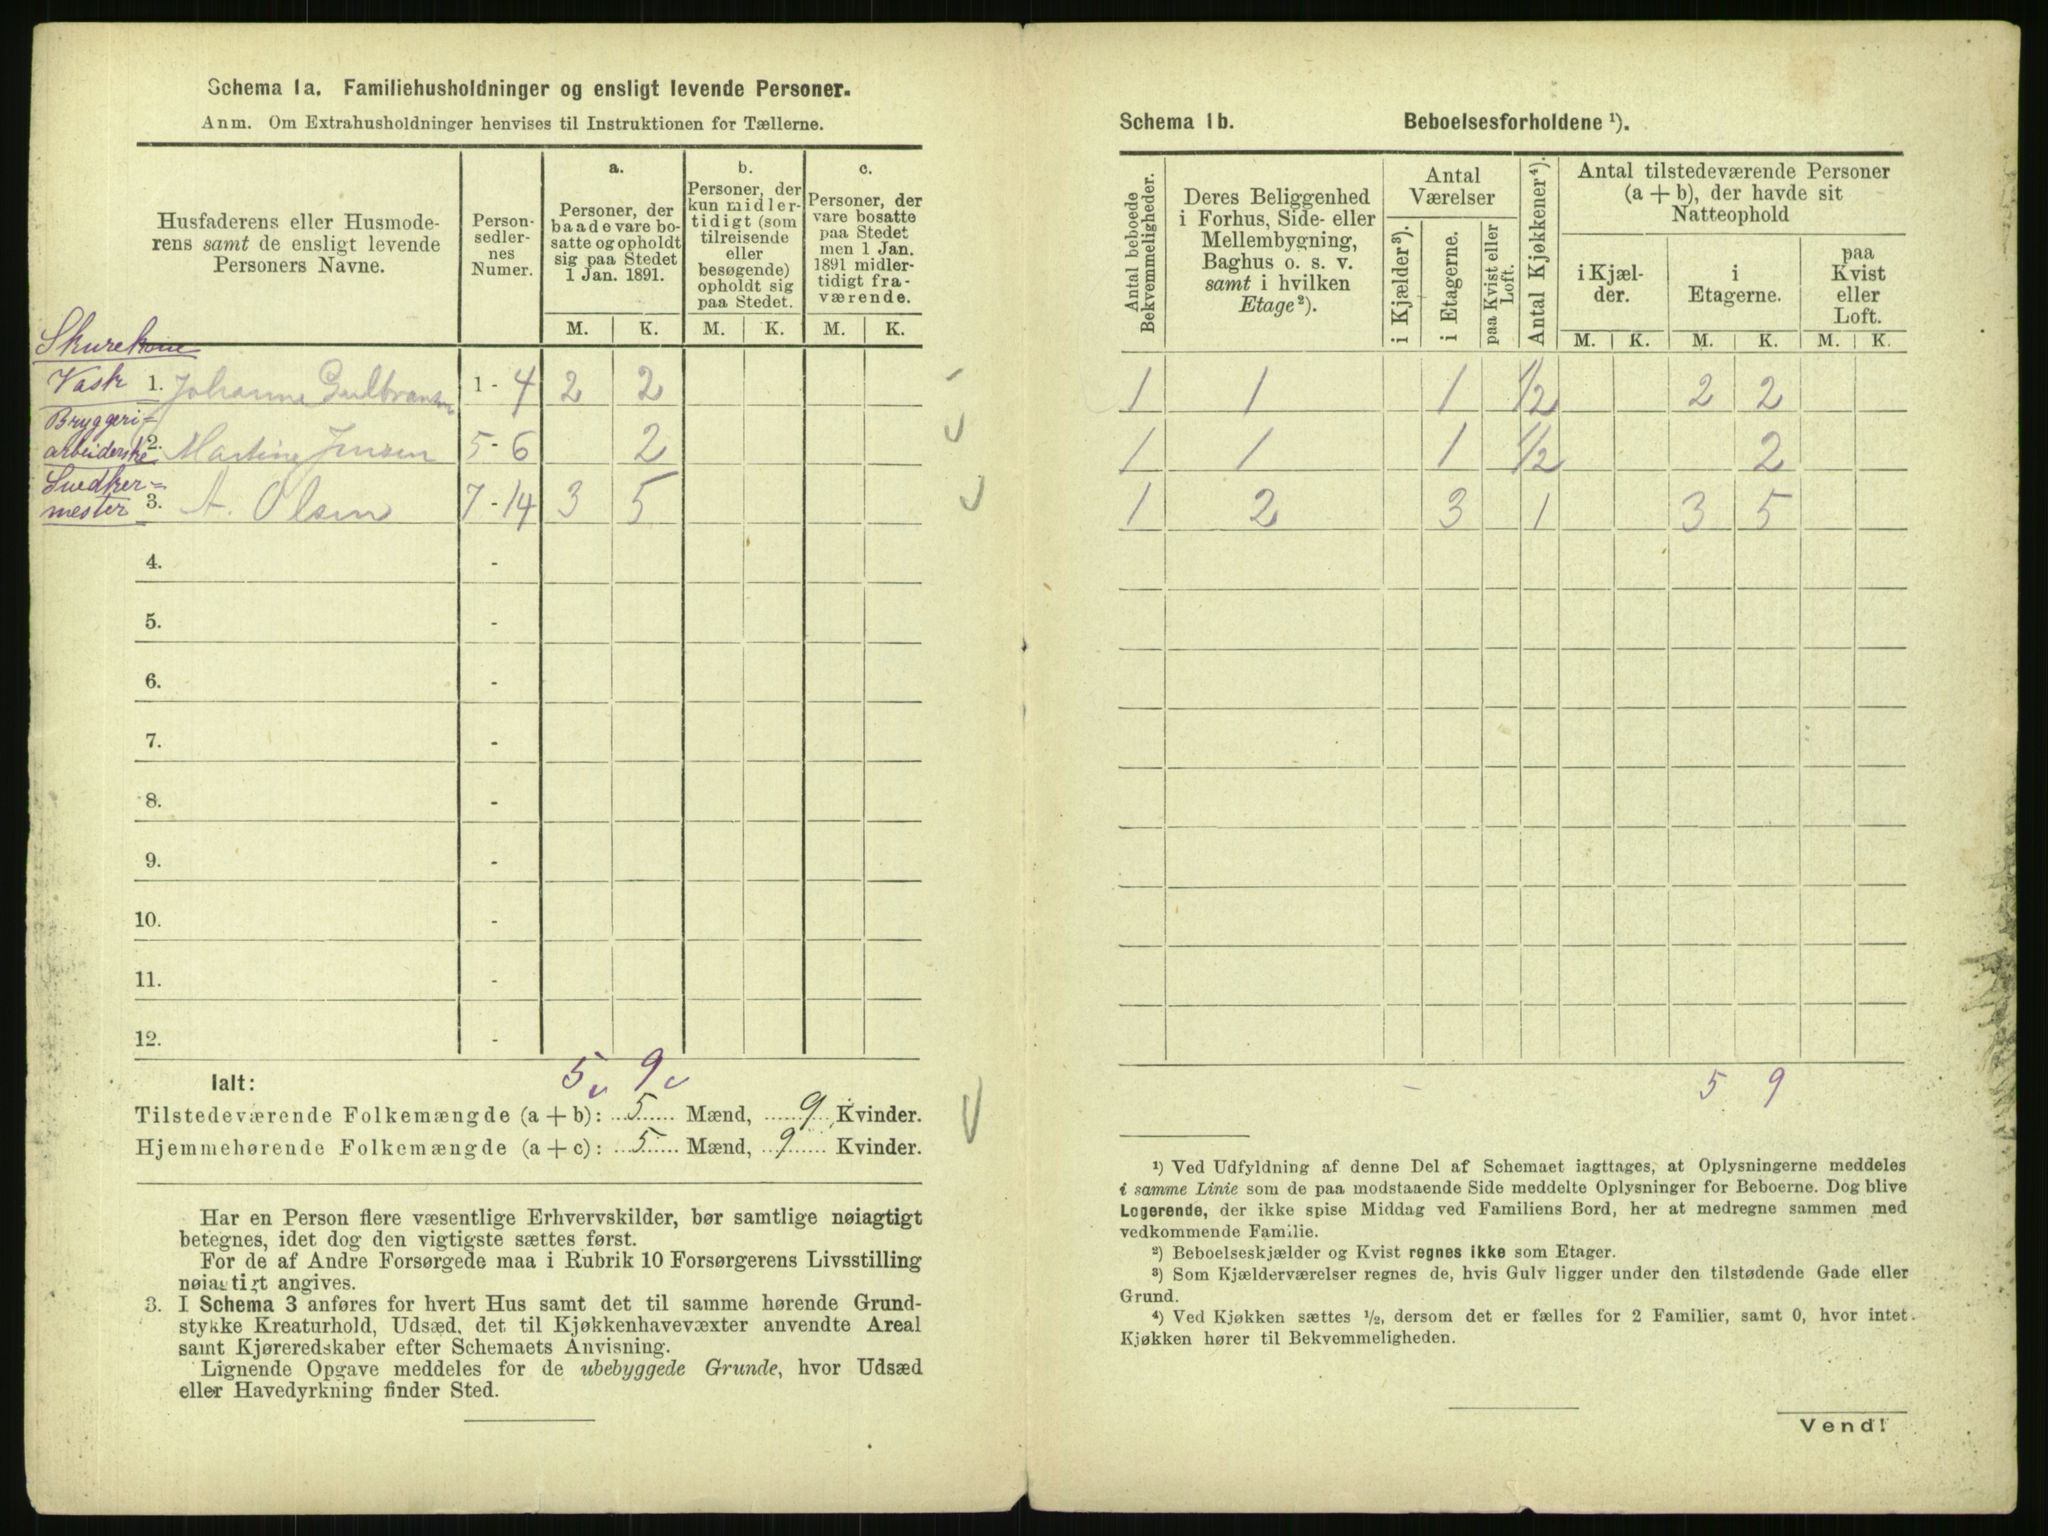 Schema 1a. Familiehusholdninger og ensligt levende Personer.
Anm. Om Extrahusholdninger henvises til Instruktionen for Tællerne.
Husfaderens eller Husmode-
rens samt de ensligt levende
Personers Navne.
Person-
sedler-
nes
Numer.
a.
Personer, der
baade vare bo-
satte og opholdt
sig paa Stedet
1 Jan. 1891.
b.
Personer, der
kun midler-
tidigt (som
tilreisende
eller
besøgende)
opholdt sig
paa Stedet.
c.
Personer, der
vare bosatte
paa Stedet
men 1 Jan.
1891 midler-
tidigt fra-
værende.
M. K. M. K. M. K.
Skurekone
Vask 1. Johanne Gulbransen 1 - 4 2 2
Bryggeri=
arbeiderske 2. Martine Jensen 5 - 6 2
Snedker=
mester 3. A. Olsen 7 - 14 3 5
4. -
5. -
6. -
7. -
8. -
9. -
10. -
11. -
12. -
5 9
Ialt:
Tilstedeværende Folkemængde (a + b): 5 Mænd, 9 Kvinder.
Hjemmehørende Folkemængde (a + c): 5 Mænd, 9 Kvinder.
Har en Person flere væsentlige Erhvervskilder, bør samtlige nøiagtigt
betegnes, idet dog den vigtigste sættes først.
For de af Andre Forsørgede maa i Rubrik 10 Forsørgerens Livsstilling
nøiagtigt angives.
3. I Schema 3 anføres for hvert Hus samt det til samme hørende Grund-
stykke Kreaturhold, Udsæd, det til Kjøkkenhavevæxter anvendte Areal
samt Kjøreredskaber efter Schemaets Anvisning.
Lignende Opgave meddeles for de ubebyggede Grunde, hvor Udsæd
eller Havedyrkning finder Sted.
Schema 1b. Beboelsesforholdene ¹).
Antal beboede
Bekvemmeligheder.
Deres Beliggenhed
i Forhus, Side- eller
Mellembygning,
Baghus o. s. v.
samt i hvilken
Etage²).
Antal
Værelser
i Kjælder³).
i Etagerne.
paa Kvist eller
Loft.
Antal Kjøkkener⁴).
Antal tilstedeværende Personer
(a + b), der havde sit
Natteophold
i Kjæl-
der.
i
Etagerne.
paa
Kvist
eller
Loft.
M. K. M. K. M. K.
1 1 1 1/2 2 2
1 1 1 1/2 2
1 2 3 1 3 5
5 9
¹) Ved Udfyldning af denne Del af Schemaet iagttages, at Oplysningerne meddeles
i samme Linie som de paa modstaaende Side meddelte Oplysninger for Beboerne. Dog blive
Logerende, der ikke spise Middag ved Familiens Bord, her at medregne sammen med
vedkommende Familie.
²) Beboelseskjælder og Kvist regnes ikke som Etager.
³) Som Kjælderværelser regnes de, hvis Gulv ligger under den tilstødende Gade eller
Grund.
⁴) Ved Kjøkken sættes ½, dersom det er fælles for 2 Familier, samt 0, hvor intet
Kjøkken hører til Bekvemmeligheden.
Vend!